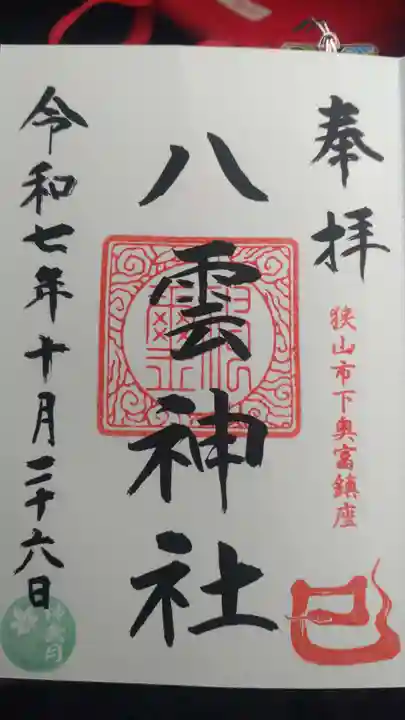 奉拝
狭山市下奥富鎮座
巳
八雲神社
令和七年十月二十六日
神無月